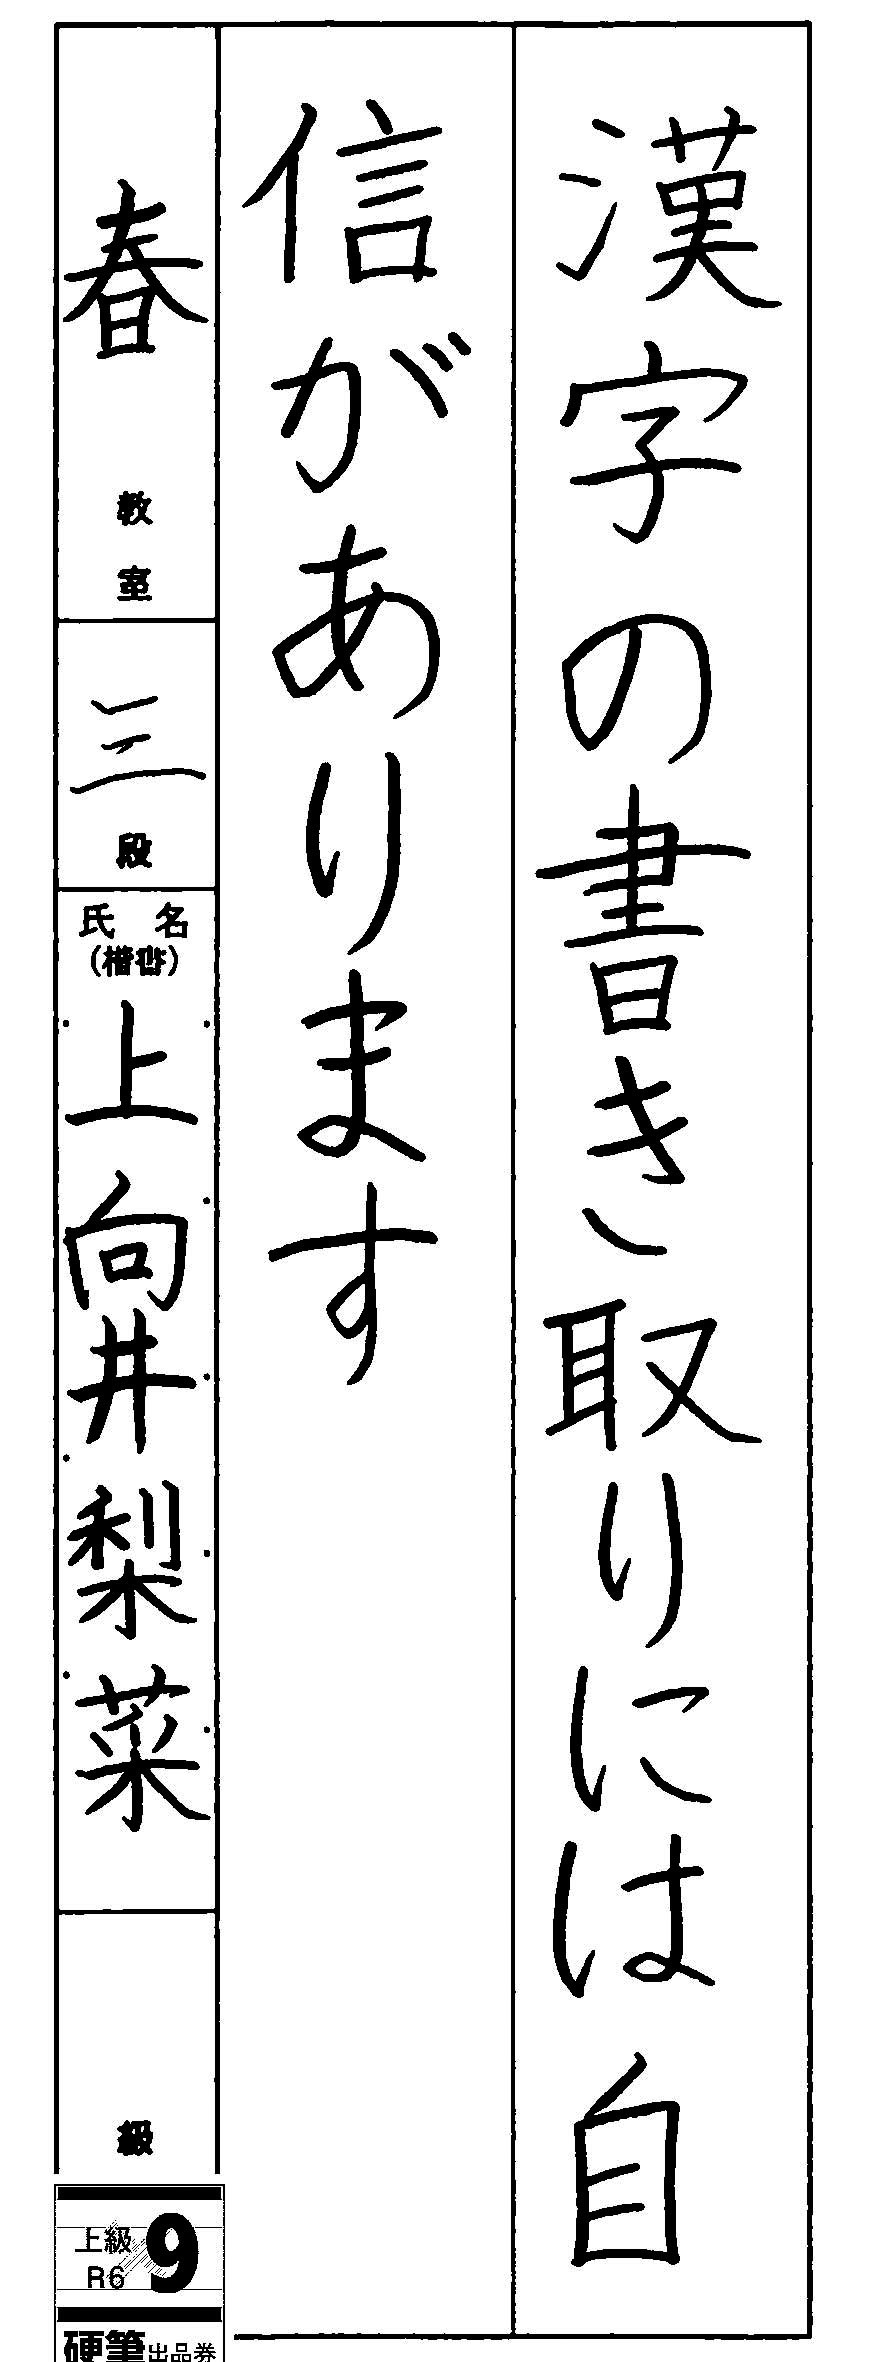 漢字の書き取りには自
信があります
春教室
三段
氏名
(楷書)
上向井梨菜
級
上級
R6
9
硬筆出品券